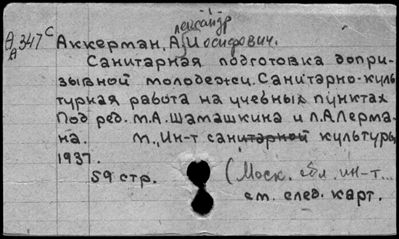 лександр
А 347 с
А
Аккерман, А. Иосифович.
Санитарная подготовка допри-
зывной молодежи. Санитарно-куль-
туркая работа на учебных пунктах
Под ред. М.А. Шамашкина и Л.А. Лерма-
на. М., Ин-т санитарной культуры,
1937.
59 стр. (Моск. обл. ин-т...
см. след. карт.